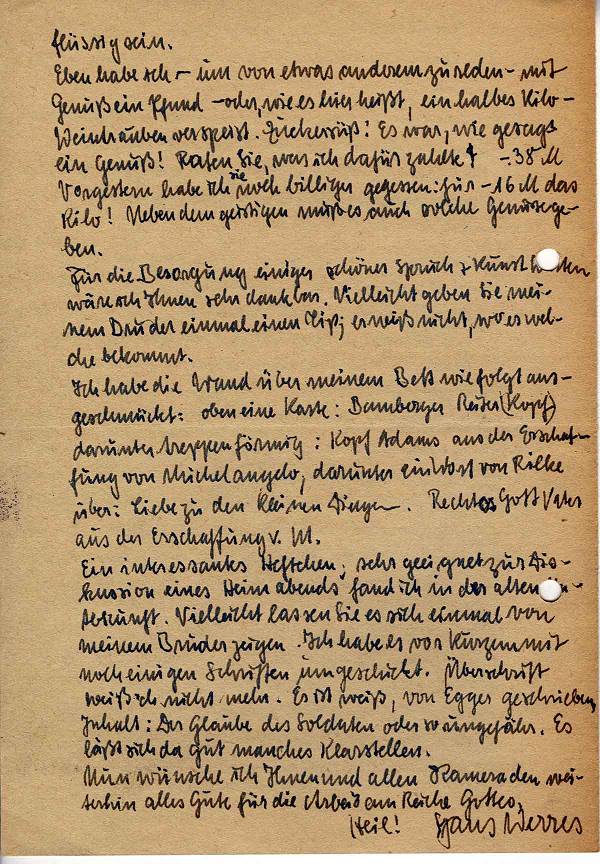 flüssig sein.
Eben habe ich – um von etwas anderem zu reden – mit
Genuß ein Pfund – oder, wie es hier heißt, ein halbes Kilo –
Weintrauben verspeist. Zuckersüß! Es war, wie gesagt
ein Genuß! Raten Sie, was ich dafür zahlte? –.38 M
Vorgestern habe ich sie noch billiger gegessen: für –.16 M das
Kilo! Neben dem geistigen muß es auch solche Genüsse ge-
ben.
Für die Besorgung einiger schöner Spruch & Kunst Karten
wäre ich Ihnen sehr dankbar. Vielleicht geben Sie mei-
nem Bruder einmal einen Tip; er weiß nicht, wo es wel-
che bekommt.
Ich habe die Wand über meinem Bett wie folgt aus-
geschmückt: oben eine Karte: Bamberger Reiter (Kopf)
darunter treppenförmig: Kopf Adams aus der Erschaf-
fung von Michelangelo, darunter ein Wort von Rilke
über: Liebe zu den kleinen Dingen. Rechts Gott Vater
aus der Erschaffung v. M.
Ein interessantes Heftchen, sehr geeignet zur Dis-
kussion eines Heimabends fand ich in der alten Un-
terkunft. Vielleicht lassen Sie es sich einmal von
meinem Bruder zeigen. Ich habe es vor Kurzem mit
noch einigen Schriften umgeschickt. Überschrift
weiß ich nicht mehr. Es ist weiß, von Egger geschrieben,
Inhalt: Der Glaube des Soldaten oder so ungefähr. Es
läßt sich da gut manches Klarstellen.
Nun wünsche ich Ihnen und allen Kameraden wei-
terhin alles Gute für die Arbeit am Reiche Gottes.
Heil! Hans Werres